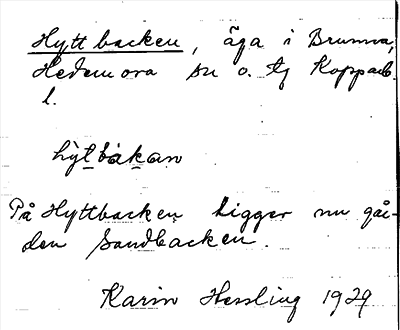 Hyttbacken, äga i Brunna,
Hedemora sn o. tg Kopparb.
l.
hy̆tbakan
På Hyttbacken ligger nu går-
den Sandbacken.
Karin Hessling 1929